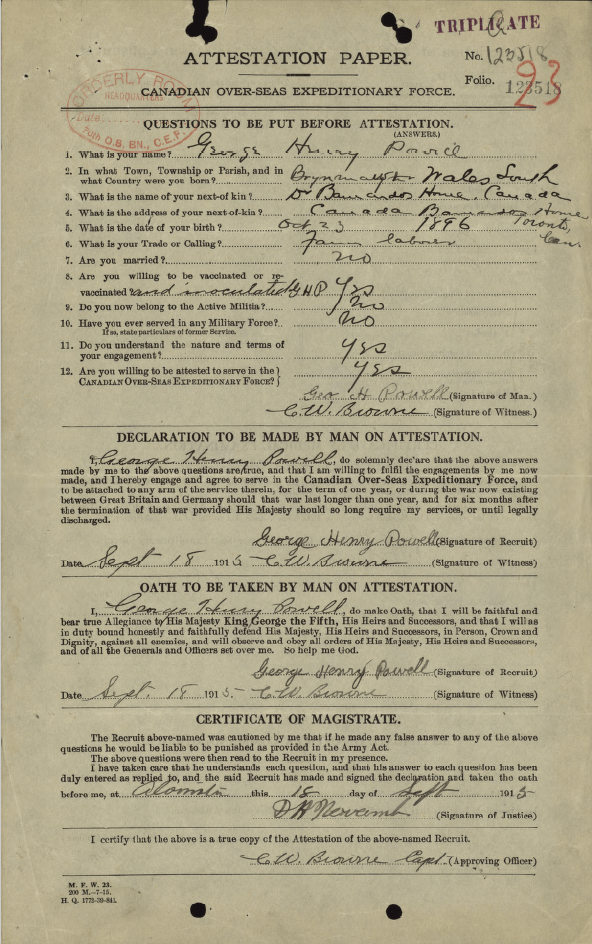 TRIPLICATE
ATTESTATION PAPER.
No. 123518
Folio. 123518
23
CANADIAN OVER-SEAS EXPEDITIONARY FORCE.
ORDERLY ROOM
HEADQUARTERS
Date
70th O.B. BN., C.E.F.
QUESTIONS TO BE PUT BEFORE ATTESTATION.
(ANSWERS)
1. What is your name? George Henry Powell
2. In what Town, Township or Parish, and in
what Country were you born? Wales South
3. What is the name of your next-of-kin? Dr Barnardos Home, Canada
4. What is the address of your next-of-kin? Canada Barnardos Home
Toronto,
Can.
5. What is the date of your birth? Oct 23 1896
6. What is your Trade or Calling? Farm laborer
7. Are you married? No
8. Are you willing to be vaccinated or re-
vaccinated? and inoculated GHP Yes
9. Do you now belong to the Active Militia? No
10. Have you ever served in any Military Force? No
If so, state particulars of former Service.
11. Do you understand the nature and terms of
your engagement? Yes
12. Are you willing to be attested to serve in the
CANADIAN OVER-SEAS EXPEDITIONARY FORCE? Yes
Geo H Powell (Signature of Man.)
C.W. Browne (Signature of Witness.)
DECLARATION TO BE MADE BY MAN ON ATTESTATION.
I, George Henry Powell, do solemnly declare that the above answers
made by me to the above questions are true, and that I am willing to fulfil the engagements by me now
made, and I hereby engage and agree to serve in the Canadian Over-Seas Expeditionary Force, and
to be attached to any arm of the service therein, for the term of one year, or during the war now existing
between Great Britain and Germany should that war last longer than one year, and for six months after
the termination of that war provided His Majesty should so long require my services, or until legally
discharged.
George Henry Powell (Signature of Recruit)
Date Sept 18 1915 C.W. Browne (Signature of Witness)
OATH TO BE TAKEN BY MAN ON ATTESTATION.
I, George Henry Powell, do make Oath, that I will be faithful and
bear true Allegiance to His Majesty King George the Fifth, His Heirs and Successors, and that I will as
in duty bound honestly and faithfully defend His Majesty, His Heirs and Successors, in Person, Crown and
Dignity, against all enemies, and will observe and obey all orders of His Majesty, His Heirs and Successors,
and of all the Generals and Officers set over me. So help me God.
George Henry Powell (Signature of Recruit)
Date Sept. 18 1915. C.W. Browne (Signature of Witness)
CERTIFICATE OF MAGISTRATE.
The Recruit above-named was cautioned by me that if he made any false answer to any of the above
questions he would be liable to be punished as provided in the Army Act.
The above questions were then read to the Recruit in my presence.
I have taken care that he understands each question, and that his answer to each question has been
duly entered as replied to, and the said Recruit has made and signed the declaration and taken the oath
before me, at this 18 day of Sept 1915
(Signature of Justice)
I certify that the above is a true copy of the Attestation of the above-named Recruit.
C.W. Browne Capt. (Approving Officer)
M. F. W. 23.
200 M.-7-15.
H. Q. 1772-39-841.